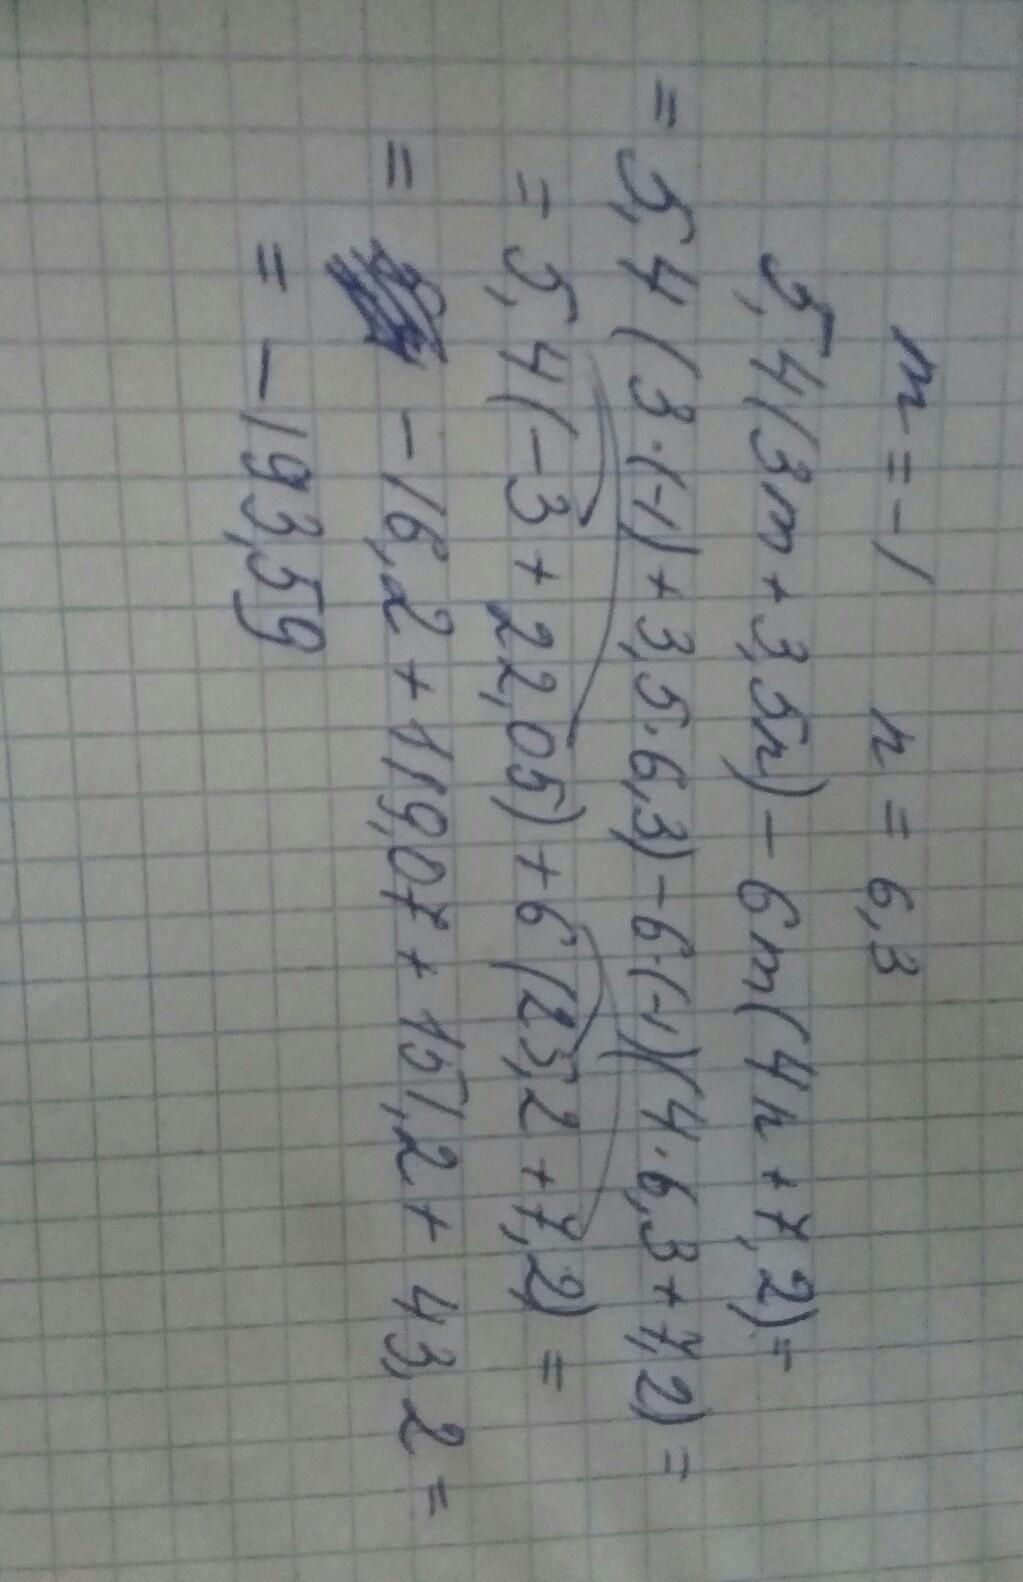 m = -1 n = 6,3
5,4(3m + 3,5n) - 6m(4n + 7,2) =
= 5,4(3·(-1) + 3,5·6,3) - 6·(-1)(4·6,3 + 7,2) =
= 5,4(-3 + 22,05) + 6(25,2 + 7,2) =
= -16,2 + 119,07 + 151,2 + 43,2 =
= -193,59